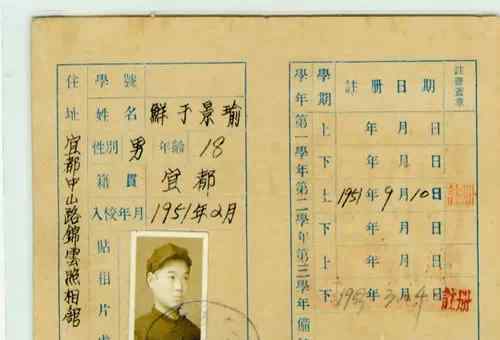 學號
姓名 鮮于景瑜
性別 男 年齡 18
籍貫 宜都
入校年月 1951年2月
貼相片處
住址 宜都中山路錦雲照相舘
學年 學期 註册日期 註冊蓋章
第一學年 上 年月日
下 年月日
第二學年 上 1951年9月10日 註册
下 年月日
第三學年 上 年月日
下 月4日 註册
備